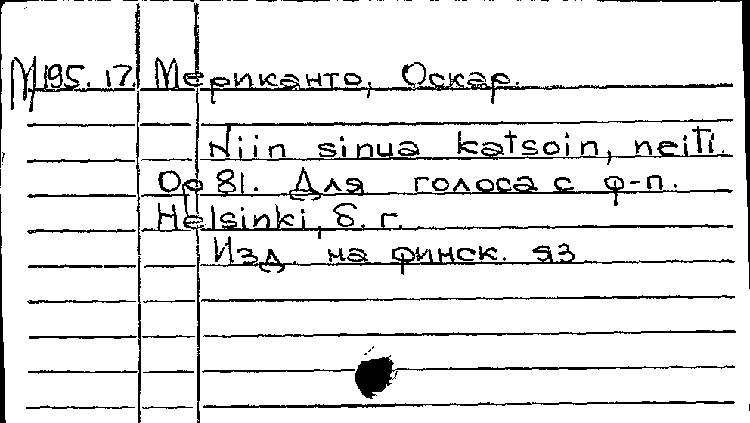 М195.17. Мериканто, Оскар.
Niin sinua katsoin, neiti.
Op 81. Для голоса с ф-п.
Helsinki, б. г.
Изд. на финск. яз